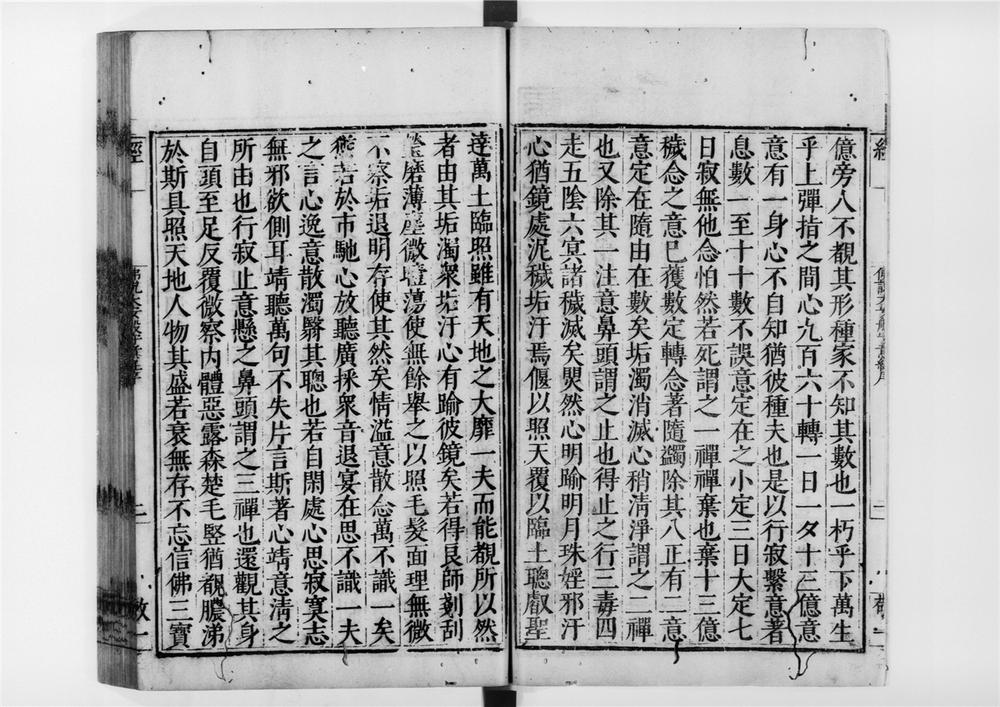 億旁人不覩其形種家不知其數也一朽乎下萬生
乎上彈指之間心九百六十轉一日一夕十三億意
意有一身心不自知猶彼種夫也是以行寂繫意著
息數一至十十數不誤意定在之小定三日大定七
日寂無他念怕然若死謂之一禪禪棄也棄十三億
穢念之意已獲數定轉念著隨蠲除其八正有二意
意定在隨由在數矣垢濁消滅心稍清淨謂之二禪
也又除其一注意鼻頭謂之止也得止之行三毒四
走五陰六冥諸穢滅矣煚然心明踰明月珠婬邪汙
心猶鏡處泥穢垢汙焉偃以照天覆以臨土聰叡聖
達萬土臨照雖有天地之大靡一夫而能覩所以然
者由其垢濁衆垢汙心有踰彼鏡矣若得良師剗刮
瑩磨薄塵微曀蕩使無餘舉之以照毛髮面理無微
不察垢退明存使其然矣情溢意散念萬不識一矣
猶若於市馳心放聽廣採衆音退宴在思不識一夫
之言心逸意散濁翳其聰也若自閑處心思寂寞志
無邪欲側耳靖聽萬句不失片言斯著心靖意清之
所由也行寂止意懸之鼻頭謂之三禪也還觀其身
自頭至足反覆微察内體惡露森楚毛竪猶覩膿涕
於斯具照天地人物其盛若衰無存不忘信佛三寶